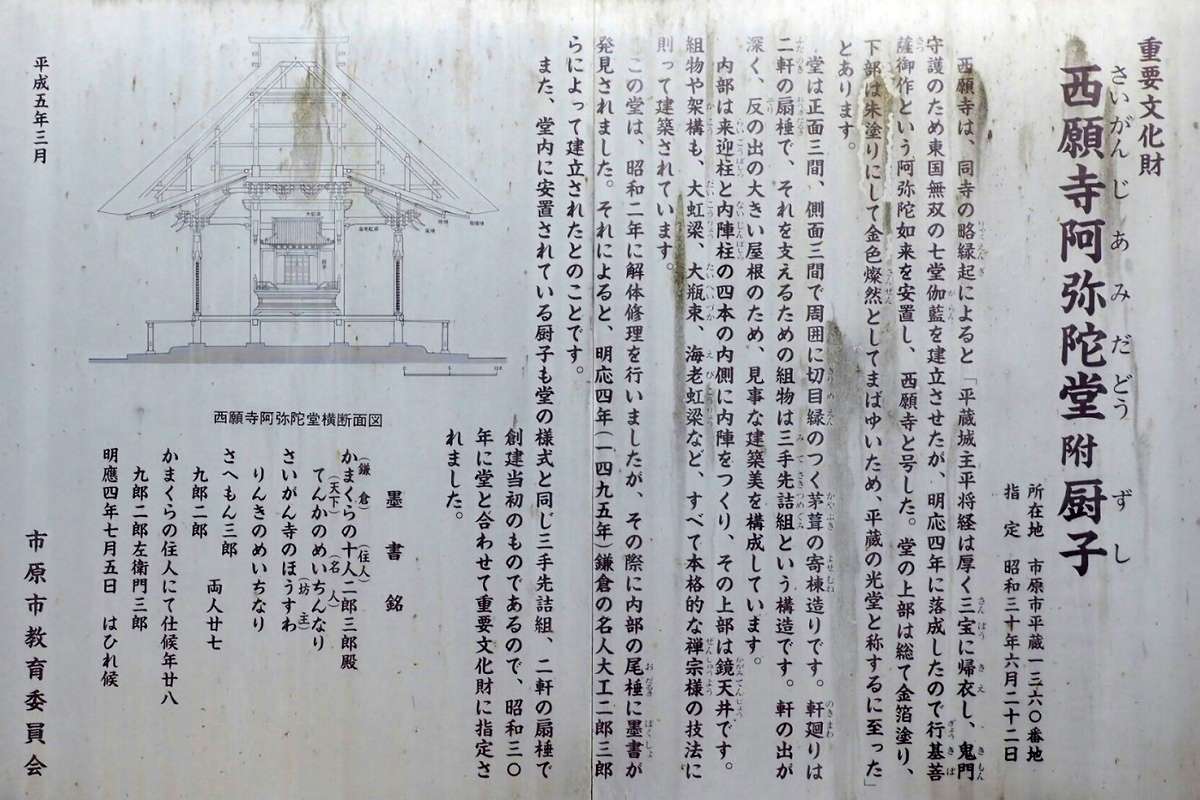 重要文化財
西願寺阿弥陀堂 附 厨子
さいがんじあみだどう ずし
所在地 市原市平蔵一三六〇番地
指 定 昭和三十年六月二十二日
西願寺は、同寺の略縁起によると「平蔵城主平将経は厚く三宝に帰衣し、鬼門
守護のため東国無双の七堂伽藍を建立させたが、明応四年に落成したので行基菩
薩御作という阿弥陀如来を安置し、西願寺と号した。堂の上部は総て金箔塗り、
下部は朱塗りにして金色燦然としてまばゆいため、平蔵の光堂と称するに至った」
とあります。
堂は正面三間、側面三間で周囲に切目縁のつく茅葺の寄棟造りです。軒廻りは
二軒の扇棰で、それを支えるための組物は三手先詰組という構造です。軒の出が
深く、反の出の大きい屋根のため、見事な建築美を構成しています。
内部は来迎柱と内陣柱の四本の内側に内陣をつくり、その上部は鏡天井です。
組物や架構も、大虹梁、大瓶束、海老虹梁など、すべて本格的な禅宗様の技法に
則って建築されています。
この堂は、昭和二年に解体修理を行いましたが、その際に内部の尾棰に墨書が
発見されました。それによると、明応四年(一四九五年)鎌倉の名人大工二郎三郎
らによって建立されたとのことです。
また、堂内に安置されている厨子も堂の様式と同じ三手先詰組、二軒の扇棰で
創建当初のものであるので、昭和三〇
年に堂と合わせて重要文化財に指定さ
れました。
墨書銘
(鎌 倉) (住人)
かまくらの十人二郎三郎殿
(天下) (名 人)
てんかのめいちんなり
(坊 主)
さいがん寺のほうすわ
りんきのめいちなり
さへもん三郎
両人廿七
九郎二郎
かまくらの住人にて仕候年廿八
九郎二郎左衛門三郎
明應四年七月五日 はひれ候
西願寺阿弥陀堂横断面図
平成五年三月
市原市教育委員会